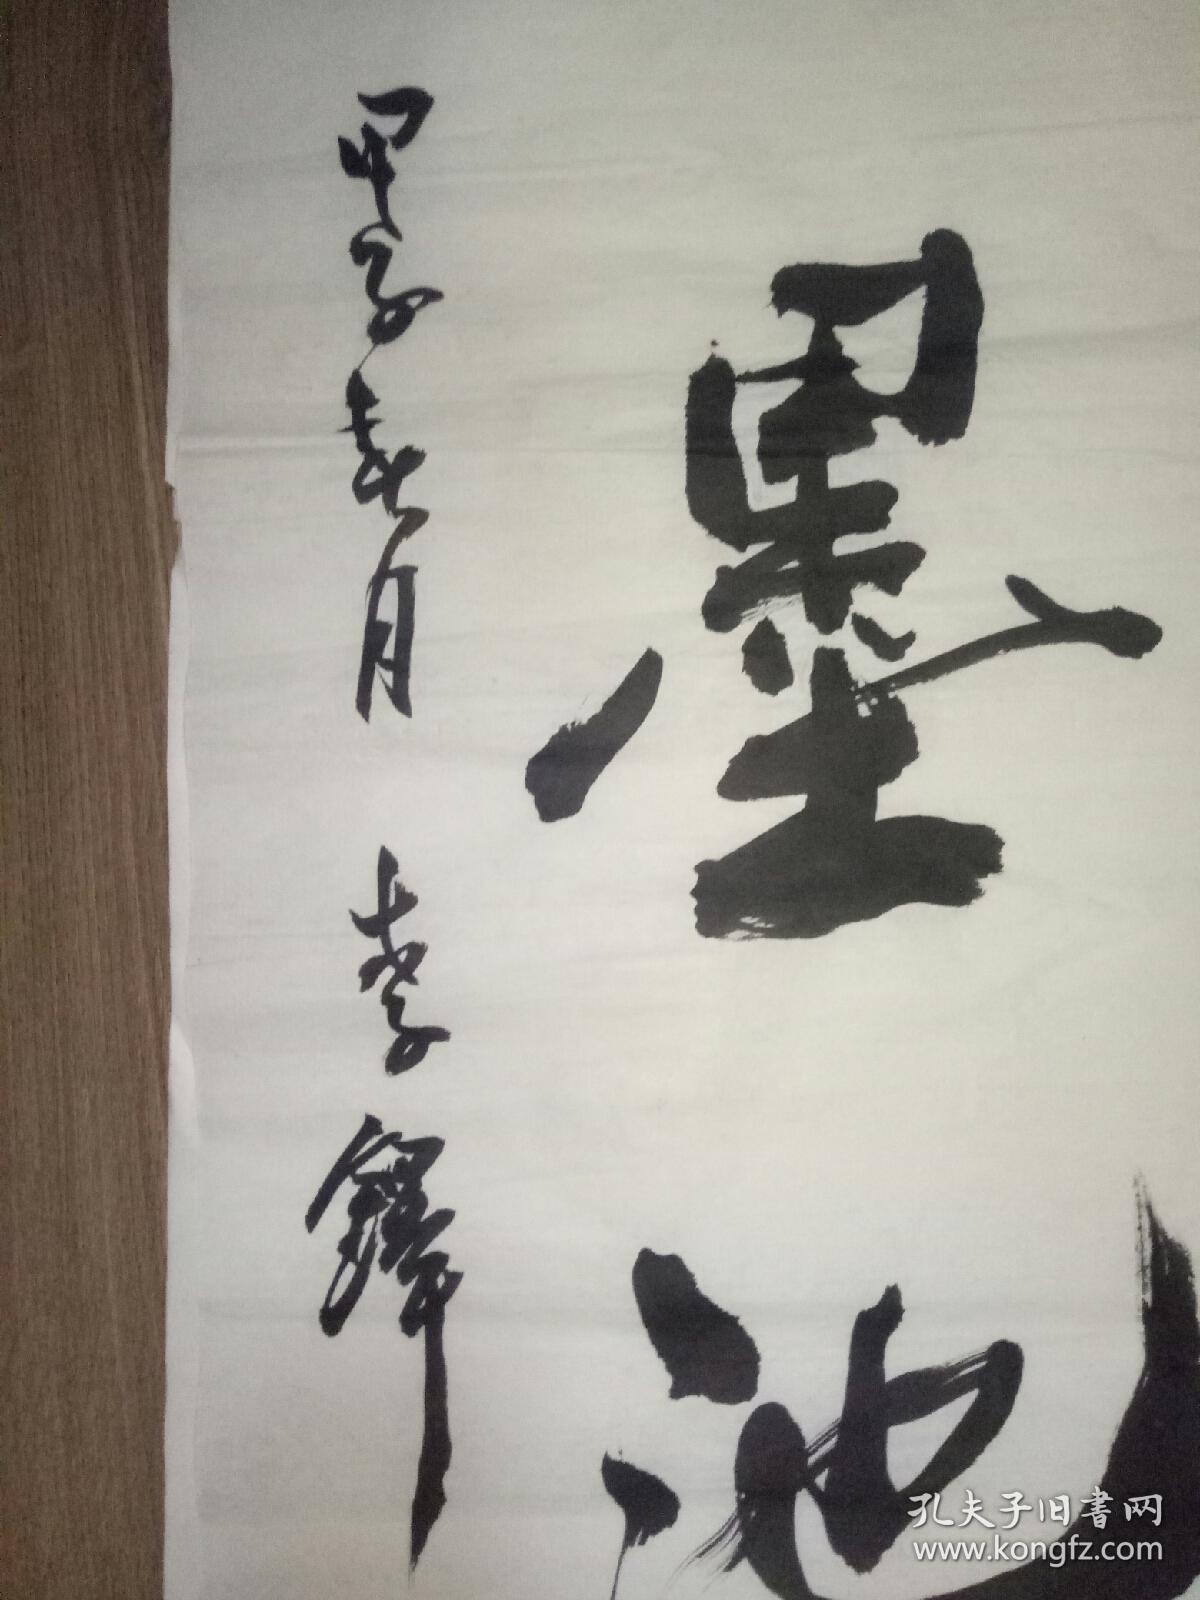 墨池
甲子春月 李鐸
孔夫子旧書网
www.kongfz.com